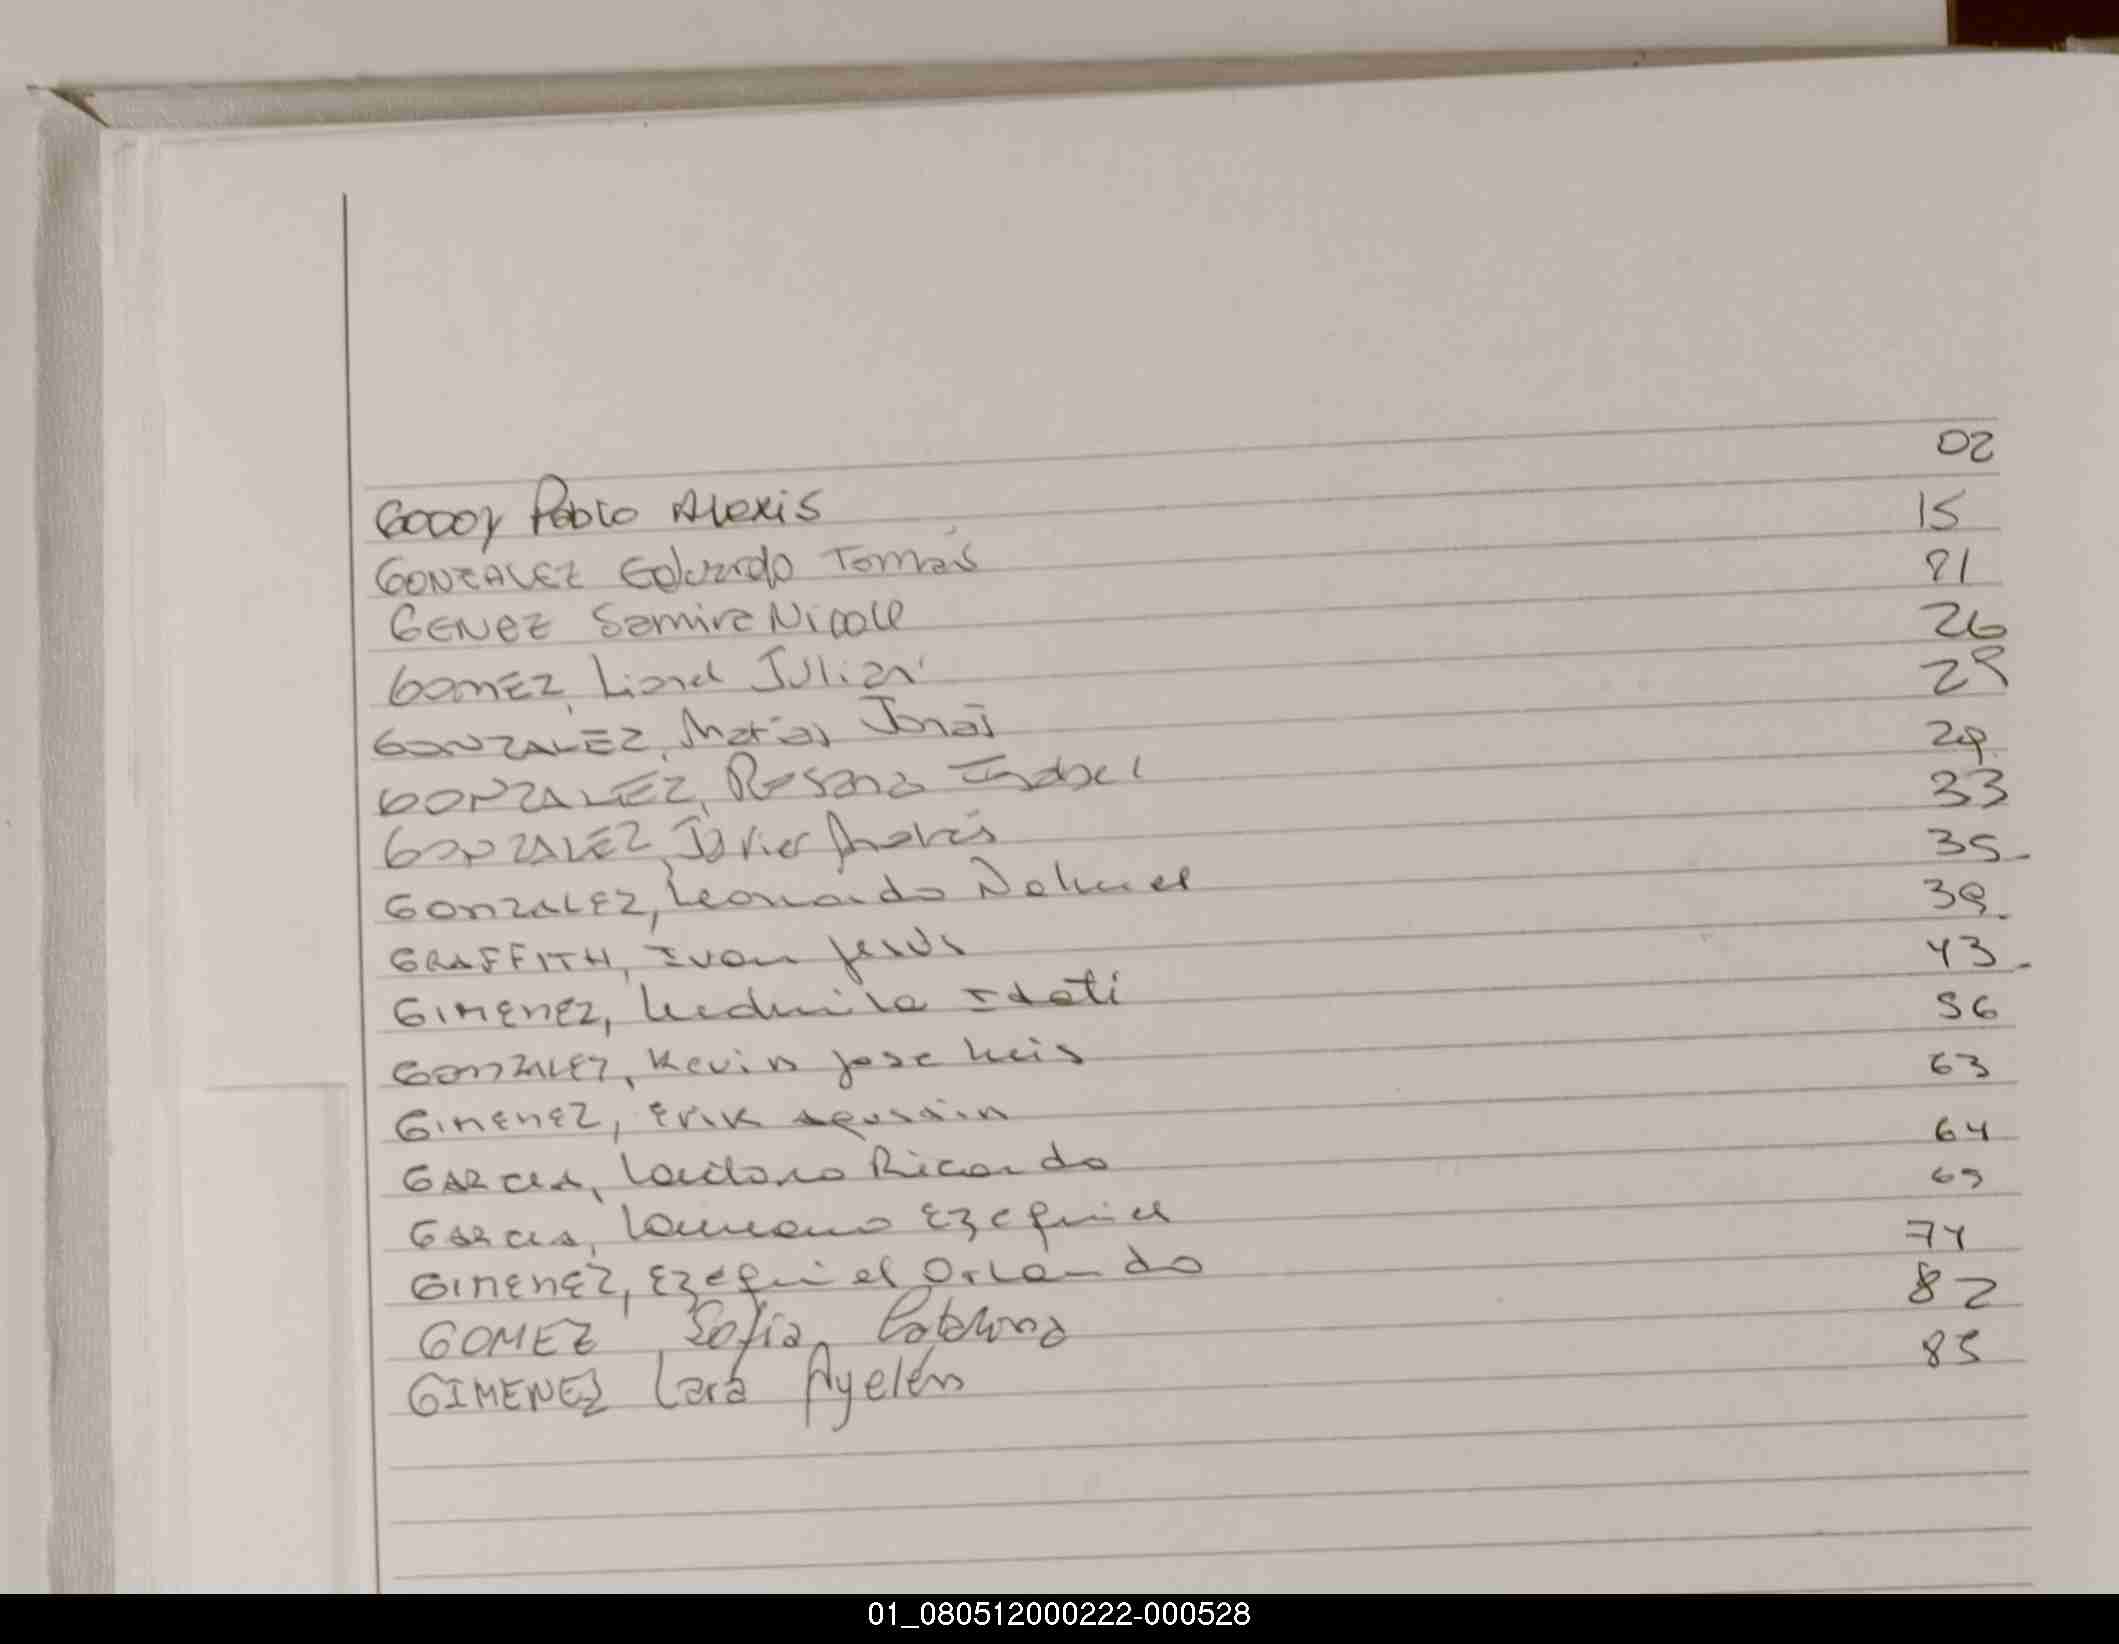 GODOY Pablo Alexis 02
GONZALEZ Eduardo Tomás 15
GENEZ Samira Nicole 21
GOMEZ, Lionel Julian 26
GONZALEZ, Matías Jonás 28
GONZALEZ, Rosana Isabel 29
GONZALEZ, Javier Andrés 33
GONZALEZ, Leonardo Nahuel 35-
GRAFFITH, Ivan Jesus 39-
GIMENEZ, Ludmila Itati 43-
GONZALEZ, Kevin Jose Luis 56
GIMENEZ, Erik Agustin 63
GARCIA, Ricardo 64
GARCIA, Ezequiel 65
GIMENEZ, Ezequiel Orlando 74
GOMEZ Sofia Catalina 82
GIMENEZ Lara Ayelén 85
01_080512000222-000528